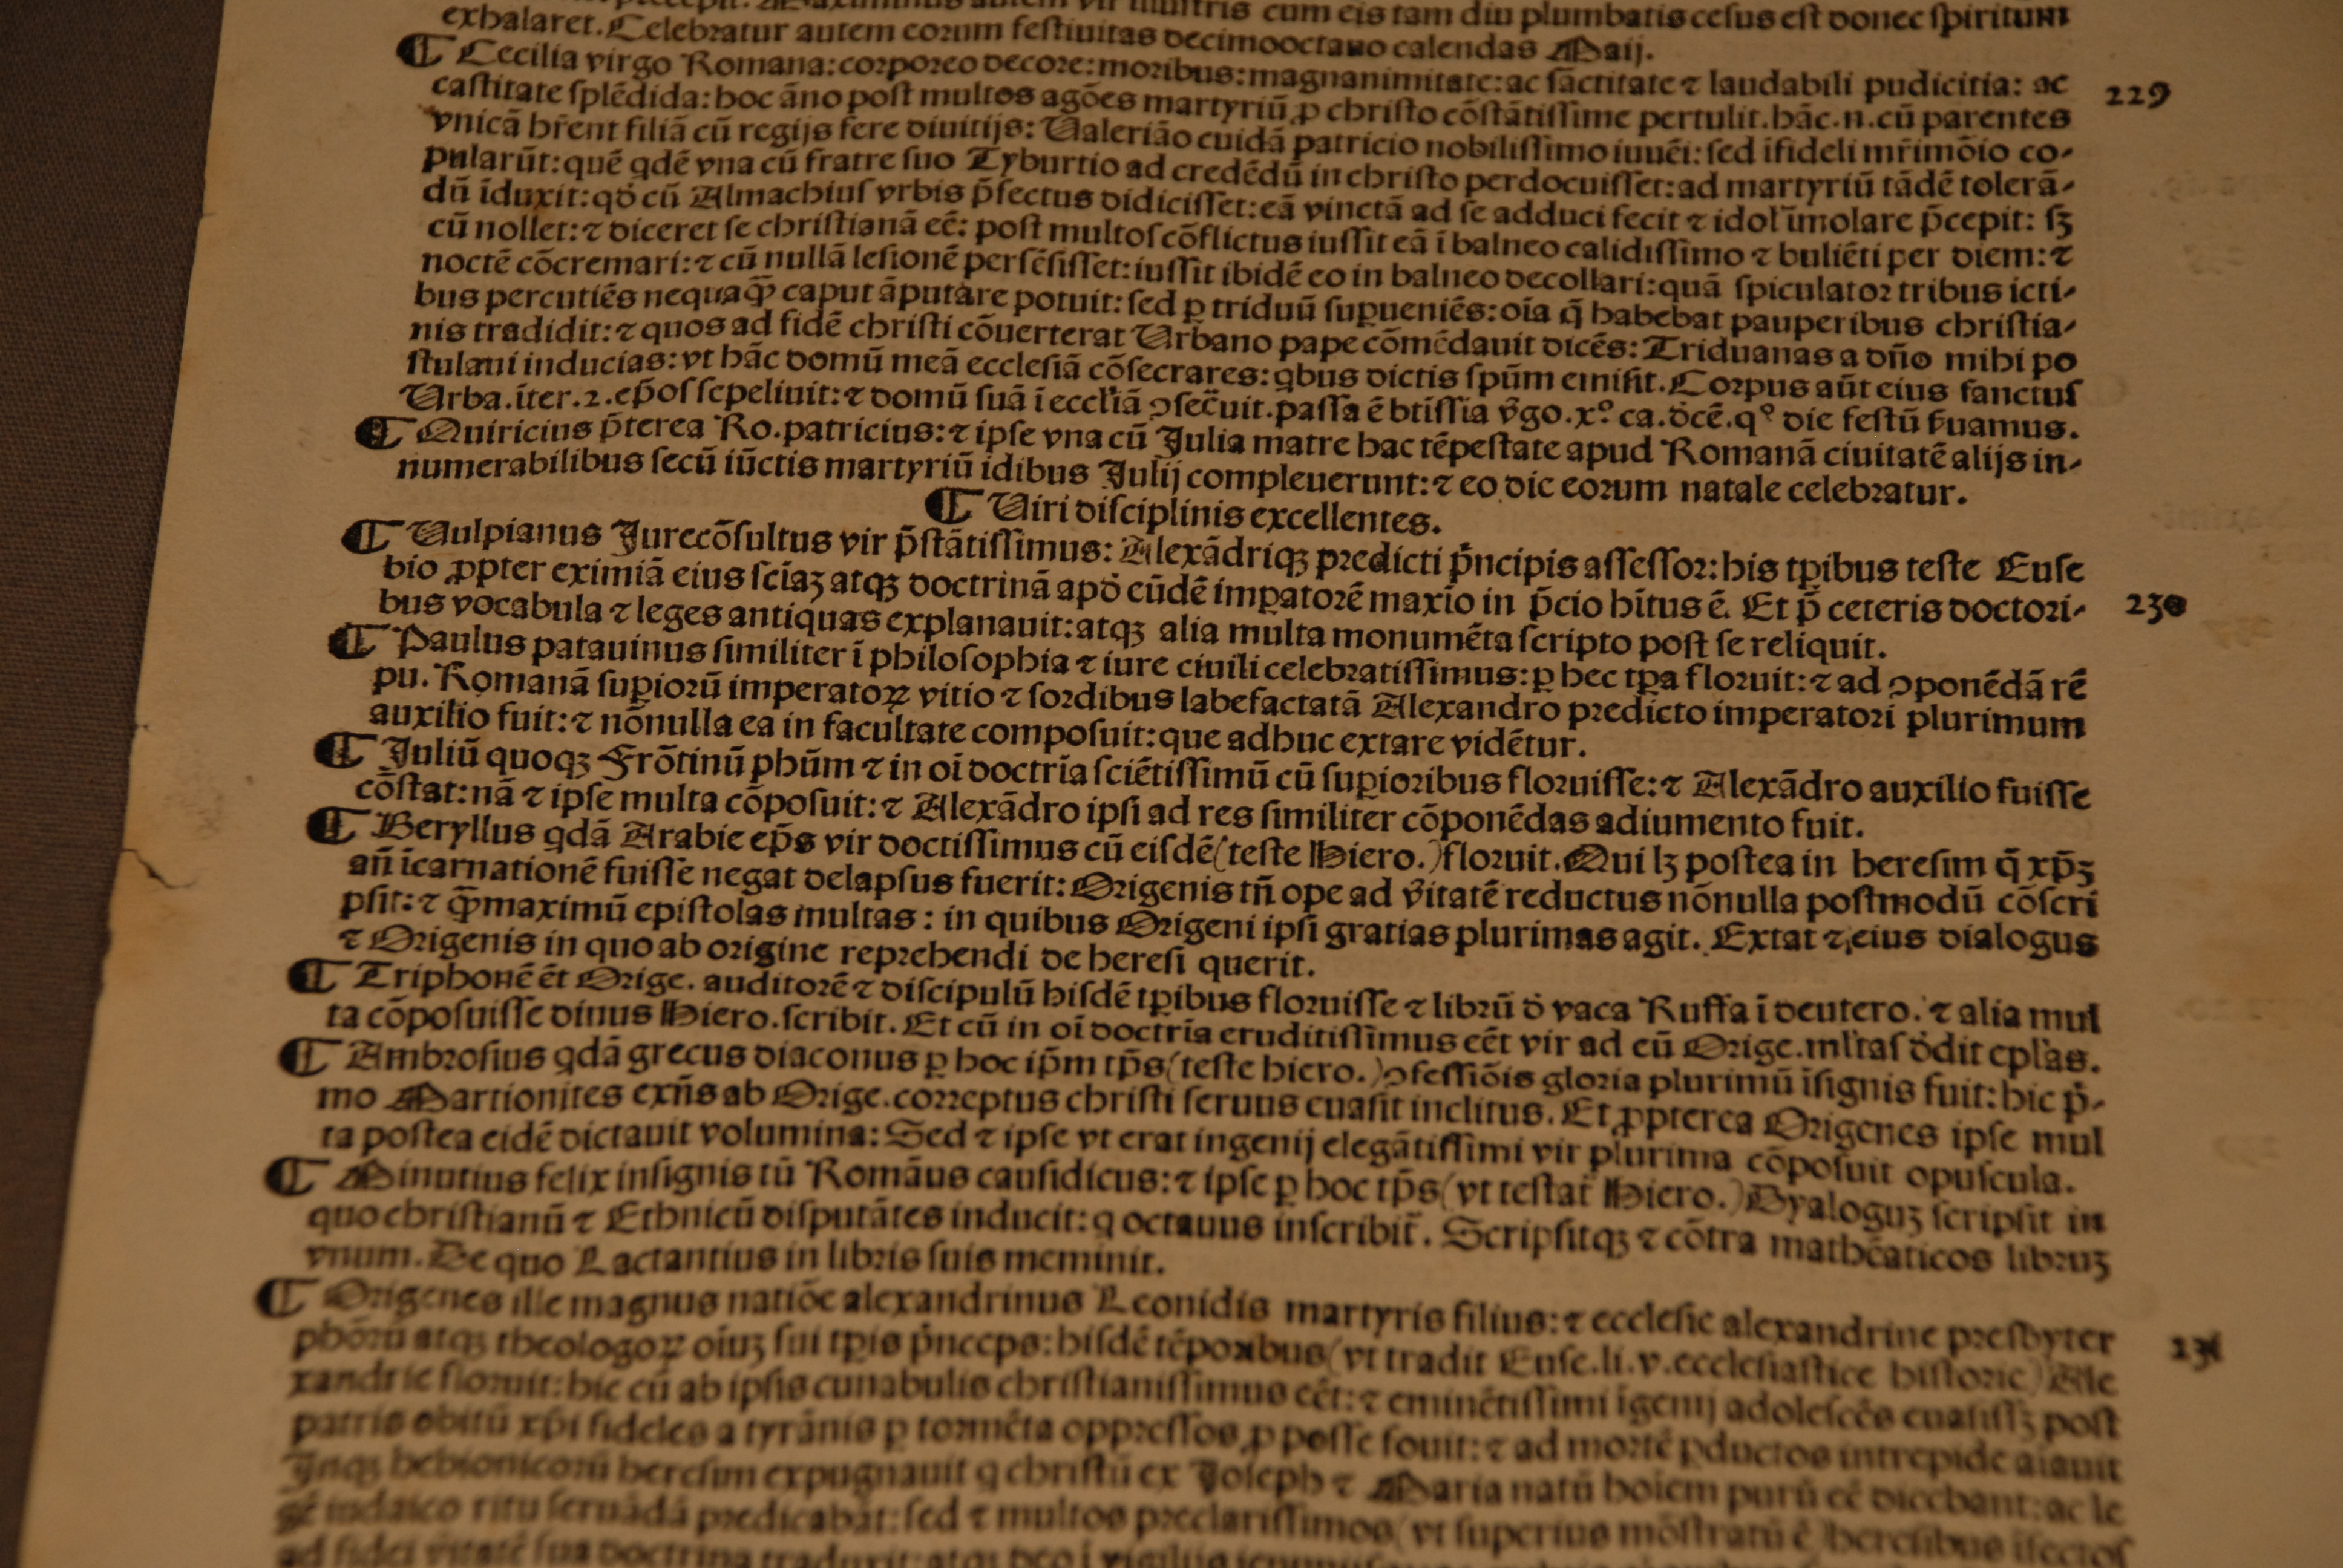 exhalaret. Celebratur autem eorum festiuitas decimooctauo calendas Maij.
¶ Cecilia virgo Romana: corporeo decore: moribus: magnanimitate: ac sãctitate ⁊ laudabili pudicitia: ac
castitate splẽdida: hoc ãno post multos agões martyriũ ꝓ christo cõstãtissime pertulit. hãc .n. cũ parentes
vnicã hr̃ent filiã cũ regijs fere diuitijs: Ualerião cuidã patricio nobilissimo iuuẽi: sed ĩfideli mr̃imõio co-
pularũt: quẽ qdẽ vna cũ fratre suo Tyburtio ad credẽdũ in christo perdocuisset: ad martyriũ tãdẽ tolerã-
dũ ĩduxit: qđ cũ Almachius vrbis p̃fectus didicisset: eã vinctã ad se adduci fecit ⁊ idol' ĩmolare p̃cepit: sꝫ
cũ nollet: ⁊ diceret se christianã eẽ: post multos cõflictus iussit eã ĩ balneo calidissimo ⁊ buliẽti per diem: ⁊
noctẽ cõcremari: ⁊ cũ nullã lesionẽ persẽsisset: iussit ibidẽ eo in balneo decollari: quã spiculator tribus icti-
bus percutiẽs nequaꝗ̃ caput ãputare potuit: sed ꝑ triduũ suꝑueniẽs: oĩa q̃ habebat pauperibus christia-
nis tradidit: ⁊ quos ad fidẽ christi cõuerterat Urbano pape cõmẽdauit dicẽs: Triduanas a dño mihi po
stulaui inducias: vt hãc domũ meã ecclesiã cõsecrares: qbus dictis spũm emisit. Corpus aũt eius sanctus
Urba. ĩter. 2. ep̃os sepeliuit: ⁊ domũ suã ĩ eccl'iã ↄsecr̃uit. passa ẽ btĩssia v̾go .x.º ca. dẽcẽ. qº die festũ s̾uamus.
¶ Quiricius p̃terea Ro. patricius: ⁊ ipse vna cũ Julia matre hac tẽpestate apud Romanã ciuitatẽ alijs in-
numerabilibus secũ iũctis martyriũ idibus Julij compleuerunt: ⁊ eo die eorum natale celebratur.
¶ Uiri disciplinis excellentes.
¶ Uulpianus Jurecõsultus vir p̃stãtissimus: Alexãdriqꝫ predicti pñcipis assessor: his tꝑibus teste Euse
bio ꝓpter eximiã eius scĩaꝫ atqꝫ doctrinã apđ eũdẽ imꝑatorẽ maxĩo in p̃cio hĩtus ẽ. Et p̃ ceteris doctori-
bus vocabula ⁊ leges antiquas explanauit: atqꝫ alia multa monumẽta scripto post se reliquit.
¶ Paulus patauinus similiter ĩ philosophia ⁊ iure ciuili celebratissimus: ꝑ hec tꝑa floruit: ⁊ ad ↄponẽdã rẽ
pu. Romanã suꝑiorũ imperatoꝝ vitio ⁊ sordibus labefactatã Alexandro predicto imperatori plurimum
auxilio fuit: ⁊ nõnulla ea in facultate composuit: que adhuc extare vidẽtur.
¶ Juliũ quoqꝫ Frõtinũ phũm ⁊ in oĩ doctrĩa sciẽtissimũ cũ suꝑioribus floruisse: ⁊ Alexãdro auxilio fuisse
cõstat: nã ⁊ ipse multa cõposuit: ⁊ Alexãdro ipsi ad res similiter cõponẽdas adiumento fuit.
¶ Beryllus qdã Arabie ep̃s vir doctissimus cũ eisdẽ (teste Hiero.) floruit. Qui lꝫ postea in heresim q̃ xp̃ꝫ
añ ĩcarnationẽ fuisse negat delapsus fuerit: Origenis tñ ope ad v̾itatẽ reductus nõnulla postmodũ cõscri
psit: ⁊ ꝗ̃maximũ epistolas multas: in quibus Origeni ipsi gratias plurimas agit. Extat ⁊ eius dialogus
⁊ Origenis in quo ab origine reprehendi de heresi querit.
¶ Triphonẽ ẽt Orige. auditorẽ ⁊ discipulũ hisdẽ tꝑibus floruisse ⁊ librũ đ vaca Ruffa ĩ deutero. ⁊ alia mul
ta cõposuisse diuus Hiero. scribit. Et cũ in oĩ doctrĩa eruditissimus eẽt vir ad eũ Orige. ml'tas ẽdit epl'as.
¶ Ambrosius qdã grecus diaconus ꝑ hoc ip̃m tp̃s (teste hiero.) ↄfessiõis gloria plurimũ ĩsignis fuit: hic p̾-
mo Martionites exñs ab Orige. correptus christi seruus euasit inclitus. Et ꝓpterea Origenes ipse mul
ta postea eidẽ dictauit volumina: Sed ⁊ ipse vt erat ingenij elegãtissimi vir plurima cõposuit opuscula.
¶ Minutius felix insignis tũ Romãus causidicus: ⁊ ipse ꝑ hoc tp̃s (vt testat̃ Hiero.) Dyaloguꝫ scripsit in
quo christianũ ⁊ Ethnicũ disputãtes inducit: q octauus inscribit̃. Scripsitqꝫ ⁊ cõtra mathẽaticos libruꝫ
vnum. De quo Lactantius in libris suis meminit.
¶ Origenes ille magnus natiõe alexandrinus Leonidis martyris filius: ⁊ ecclesie alexandrine presbyter
phõrũ atqꝫ theologoꝝ oĩuꝫ sui tꝑis pñceps: hisdẽ tẽporibus (vt tradit Euse. li. v. ecclesiastice historie) Ale
xandrie floruit: hic cũ ab ipsis cunabulis christianissimus eẽt: ⁊ eminẽtissimi ĩgenij adolescẽs euasissꝫ post
patris obitũ xp̃i fideles a tyrãnis ꝑ tormẽta oppressos ꝓ posse fouit: ⁊ ad mortẽ ꝑductos intrepide aĩauit
Jnqꝫ hebionicorũ heresim expugnauit q christũ ex Joseph ⁊ Maria natũ hoĩem purũ eẽ dicebant: ac le
gẽ iudaico ritu seruãdã predicabãt: sed ⁊ multos preclarissimos (vt superius mõstratũ ẽ) heresibus ĩfectos
229
230
231